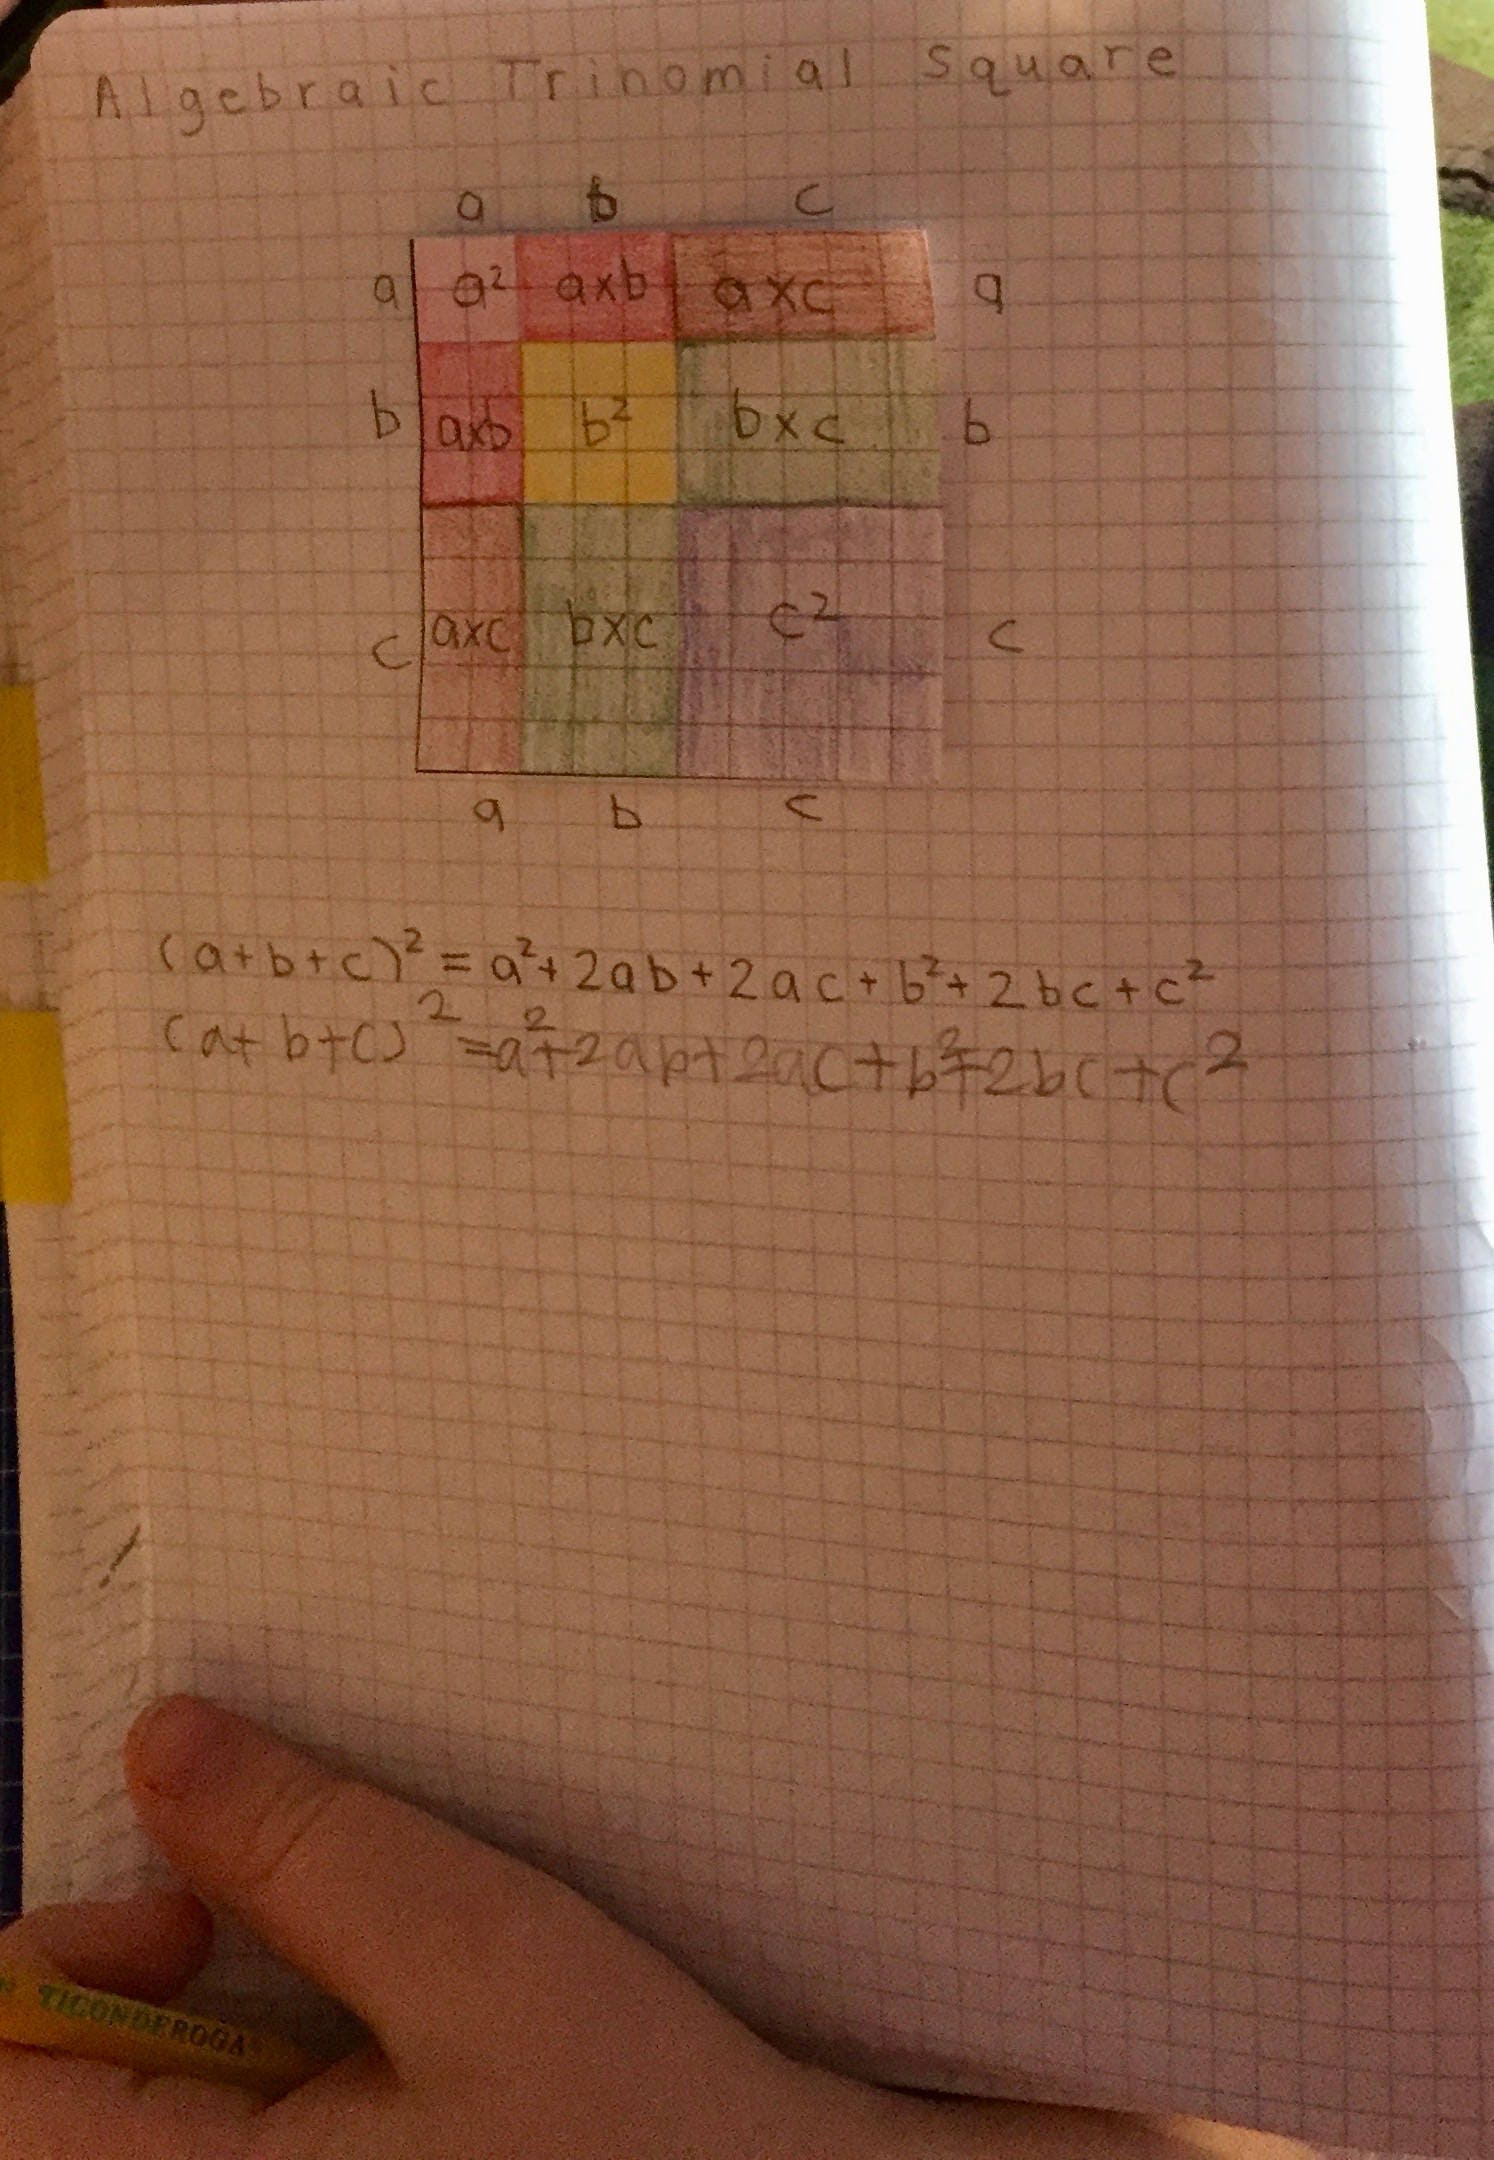 Algebraic Trinomial Square
a b c
a a² axb axc a
b axb b² bxc b
c axc bxc c² c
a b c
(a+b+c)² = a²+2ab+2ac+b²+2bc+c²
(a+b+c)²=a²+2ab+2ac+b²+2bc+c²
TICONDEROGA